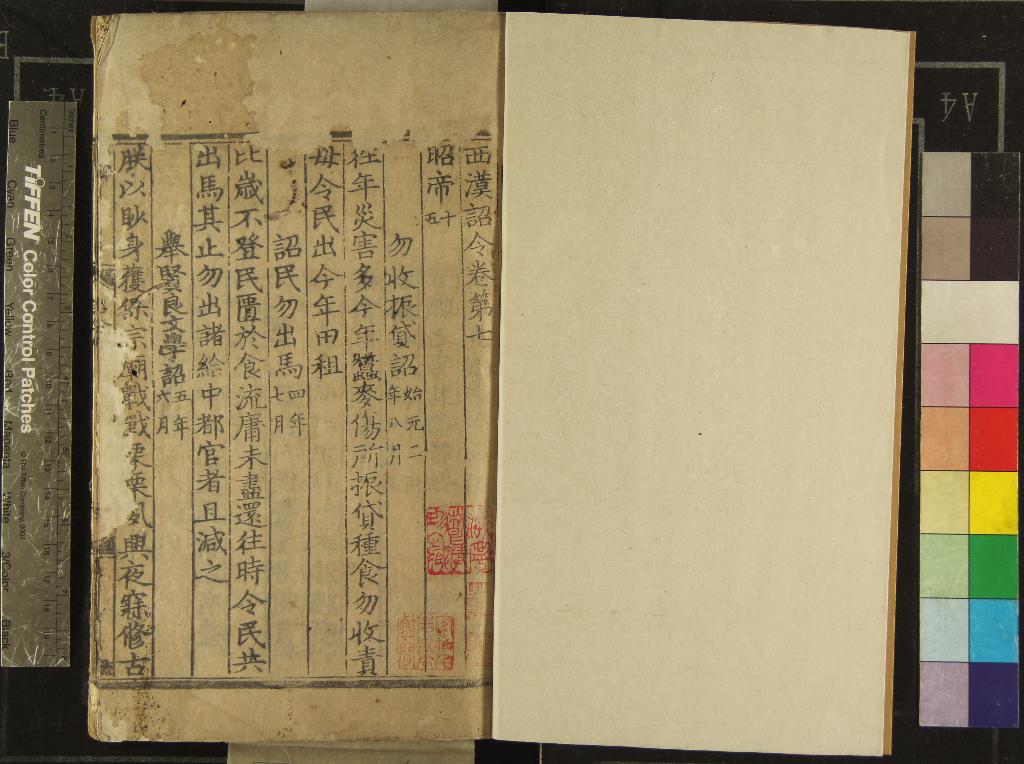 西漢詔令卷第七
昭帝十五
勿收振貸詔始元二年八月
往年災害多今年蠶麥傷所振貸種食勿收責
毋令民出今年田租
詔民勿出馬四年七月
比歲不登民匱於食流庸未盡還往時令民共
出馬其止勿出諸給中都官者且減之
舉賢良文學詔五年六月
朕以眇身獲保宗廟戰戰栗栗夙興夜寐修古
A4
TIFFEN Color Control Patches
Centimetres
Inches
Blue
Cyan
Green
Yellow
Red
Magenta
White
3/Color
Black
© The Tiffen Company, 2007